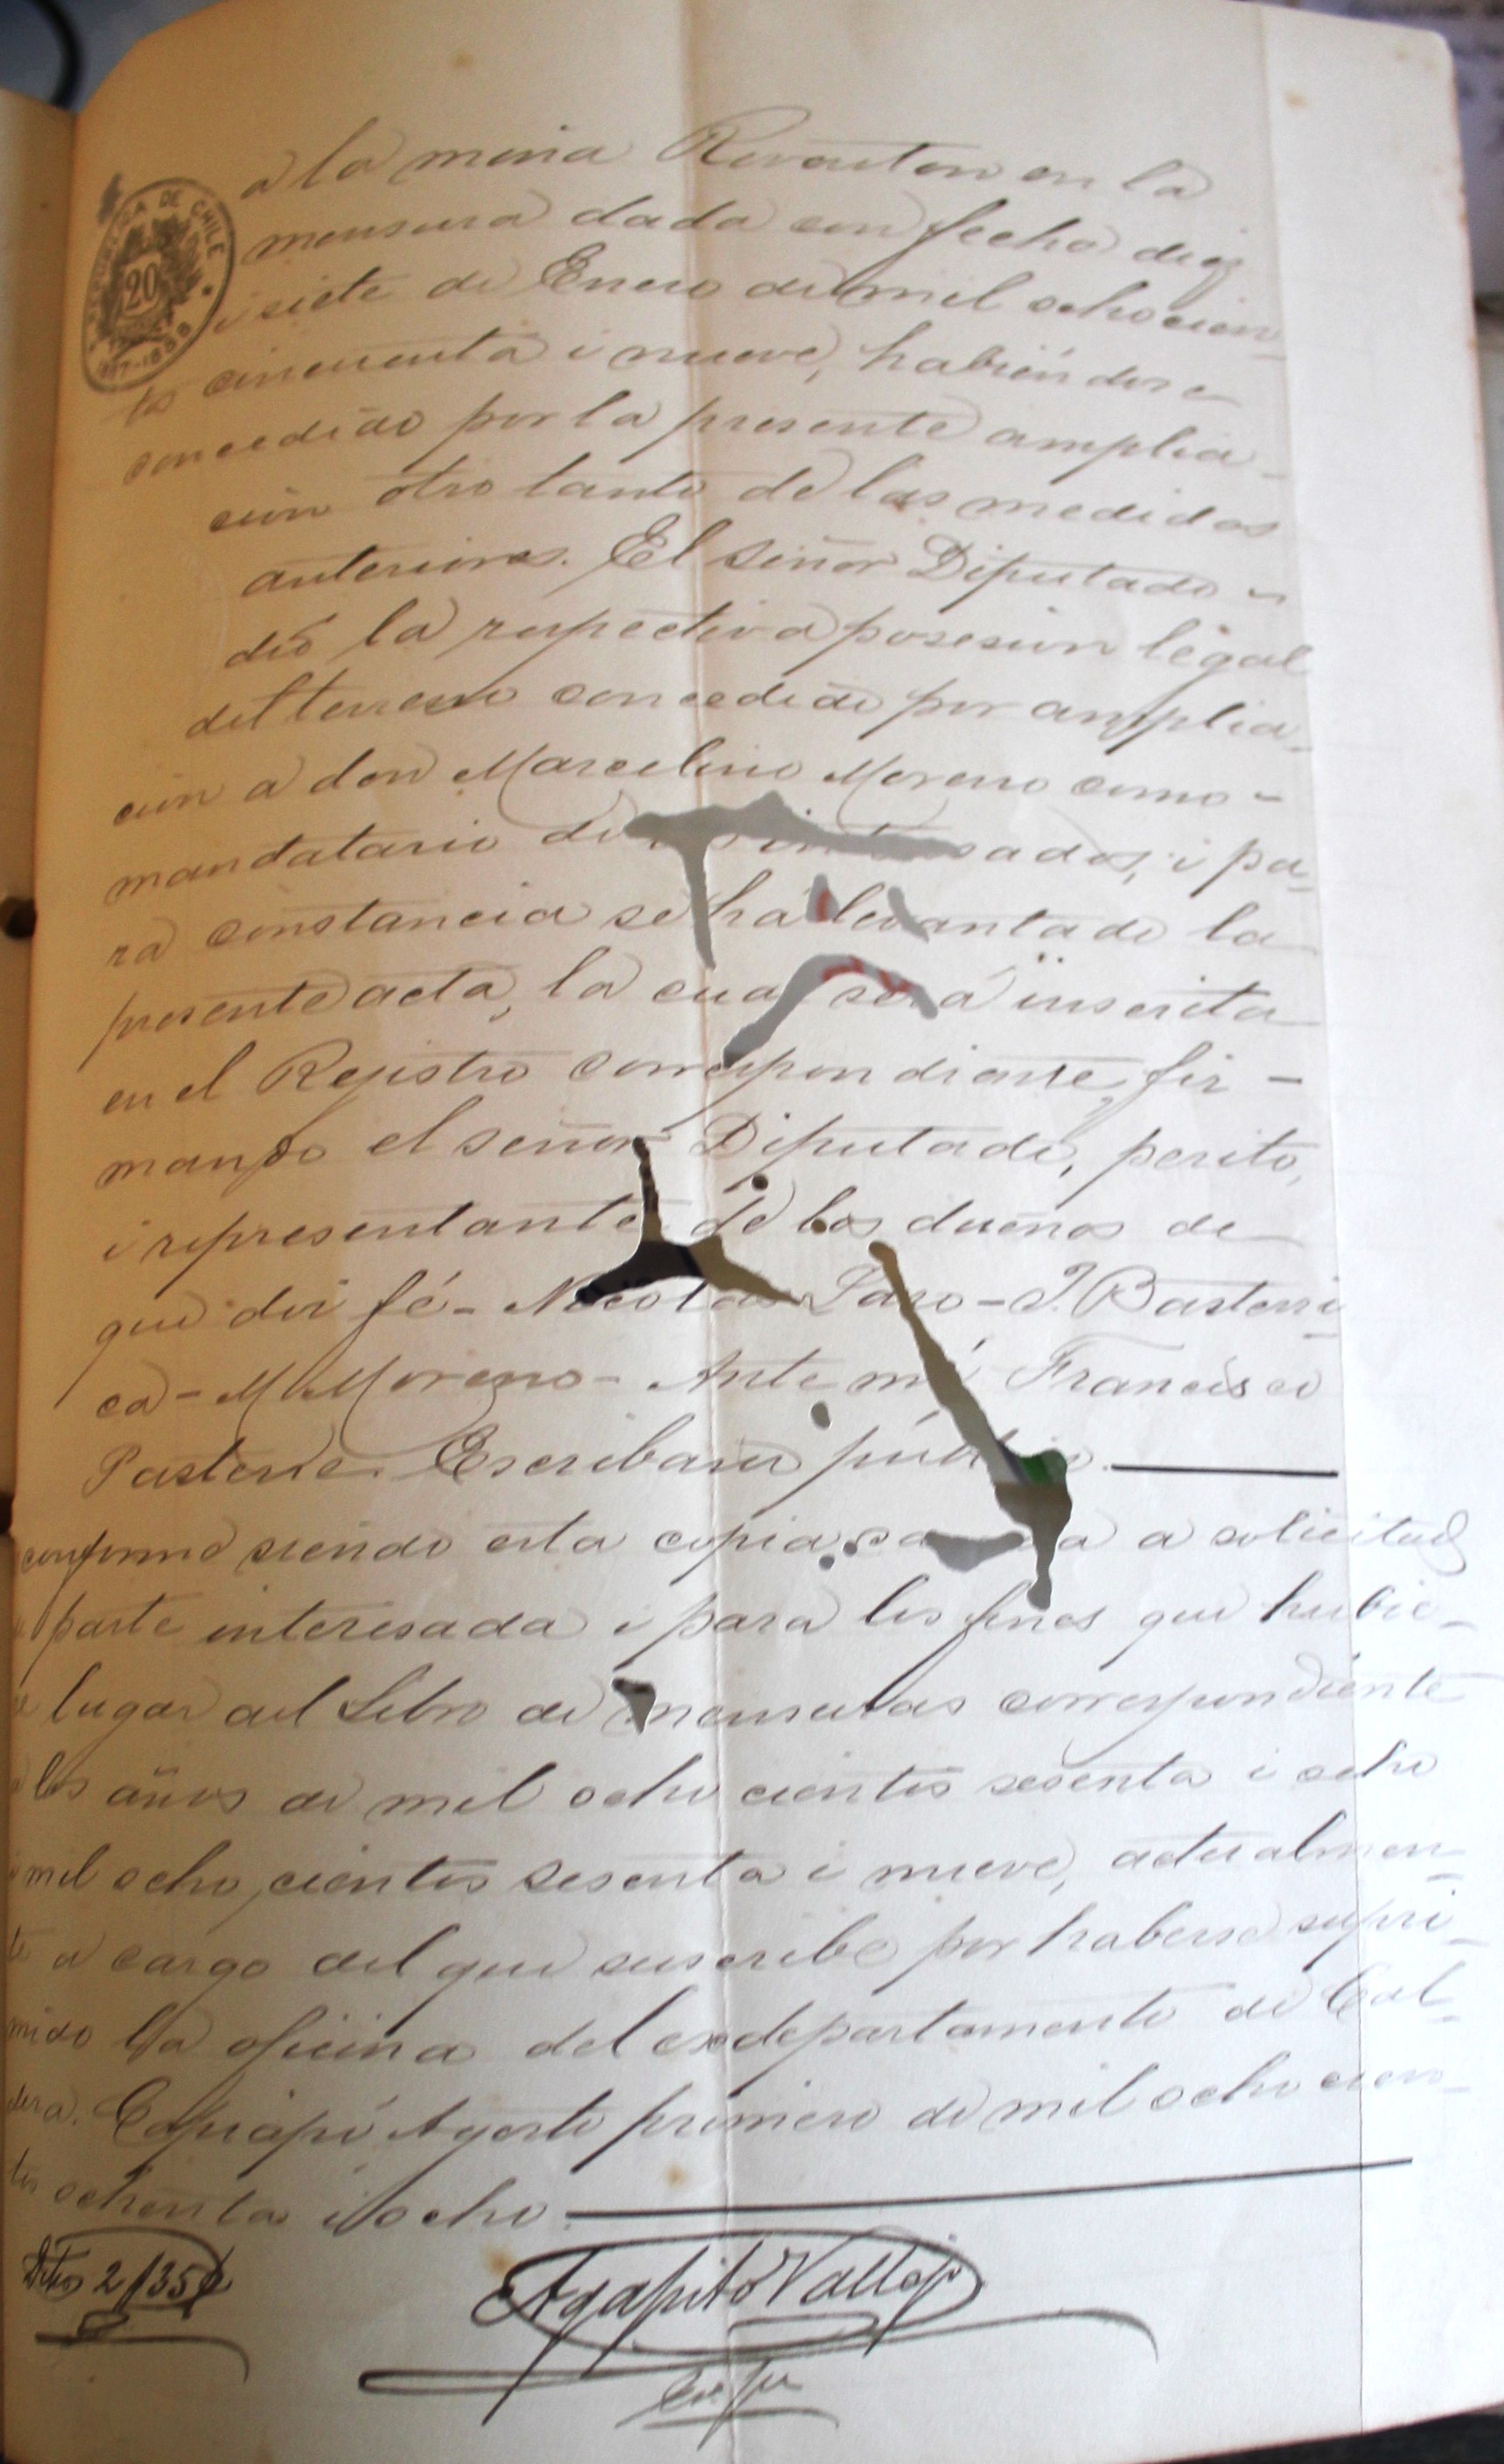 REPUBLICA DE CHILE
20
1887-1888
a la mina Reventon en la
mensura dada con fecha diez
i siete de Enero de mil ochocien-
tos cincuenta i nueve, habiendose
concedido por la presente amplia-
cion otro tanto de las medidas
anteriores. El señor Diputado
dió la respectiva posesion legal
del terreno concedido por amplia-
cion a don Marcelino Moreno como-
mandatario de sados, i pa-
ra constancia se ha levantado la
presente acta, la cual será inscrita
en el Registro correspondiente, fir-
mando el señor Diputado, perito,
i representante de los dueños de
que doi fé- Nicolas Lazo- J. Basterri-
ca- M. Moreno- Ante mi Francisco
Pasterie. Escribano público.
conforme siendo esta copia sacada a solicitud
parte interesada i para los fines que hubie-
re lugar del Libro de mensuras correspondiente
a los años de mil ochocientos sesenta i ocho
i mil ochocientos sesenta i nueve, actualmen-
te a cargo del que suscribe por haberse supri-
mido la oficina del exdepartamento de Cal-
dera. Copiapó Agosto primero de mil ochocien-
tos ochenta i ocho.
Agapito Vallejo